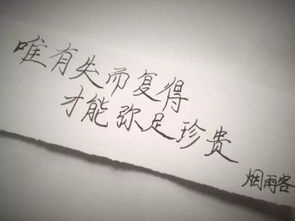 唯有失而复得
才能弥足珍贵
烟雨客